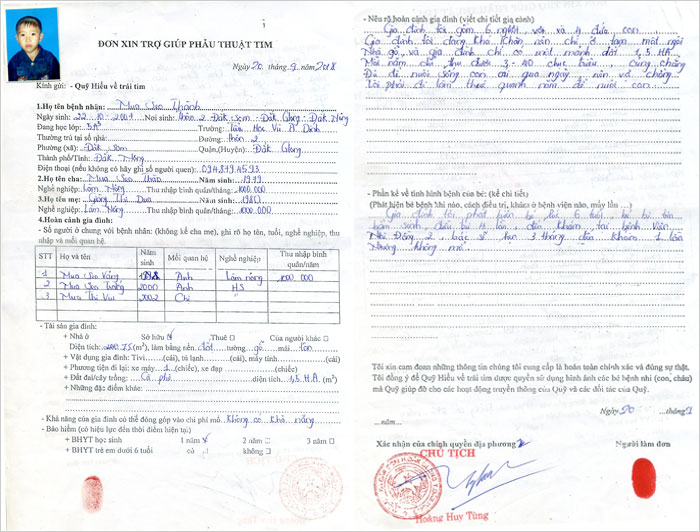 ĐƠN XIN TRỢ GIÚP PHẪU THUẬT TIM
Ngày 20 tháng 9 năm 2018
Kính gửi: - Quỹ Hiểu về trái tim
1.Họ tên bệnh nhân: Mua Seo Thành
Ngày sinh: 22 - 10 - 2009 Nơi sinh: thôn 2 Đăk Som - Đăk Glong - Đăk Nông
Đang học lớp: Trường: Tiểu Học Vừ A Dính
Thường trú tại số nhà: Đường: thôn 2
Phường (xã): Đăk Som Quận,(Huyện): Đăk Glong
Thành phố/Tỉnh: Đăk Nông
Điện thoại (nếu không có hãy ghi số người quen):
2.Họ tên cha: Mua Seo Thào Năm sinh: 1979
Nghề nghiệp: Làm Nông Thu nhập bình quân/tháng: 1000.000
3.Họ tên mẹ: Giàng Thị Dua Năm sinh: 1980
Nghề nghiệp: Làm Nông Thu nhập bình quân/tháng: 1000.000
4.Hoàn cảnh gia đình:
- Số người ở chung với bệnh nhân: (không kể cha mẹ), ghi rõ họ tên, tuổi, nghề nghiệp, thu nhập và mối quan hệ.
STT Họ và tên Năm sinh Mối quan hệ Nghề nghiệp Thu nhập bình quân/năm
1 Mua Seo Vàng 1998 Anh Làm nông 1000.000
2 Mua Seo 2000 Anh HS
3 Mua Thị 2002 Chị
- Tài sản gia đình:
+ Nhà ở Sở hữu Thuê Của người khác
Diện tích: (m²), làm bằng nền đất tường gỗ mái tôn
+ Vật dụng gia đình: Tivi (cái), tủ lạnh (cái), máy tính (cái)
+ Phương tiện đi lại: xe máy 1 (chiếc), xe đạp (chiếc)
+ Đất đai/cây trồng: Cà phê diện tích 1,5 HA (m²)
+ Những đặc điểm khác:
- Khả năng của gia đình có thể đóng góp vào chi phí mổ: Không có khả năng
- Bảo hiểm (có hiệu lực đến thời điểm hiện tại)
+ BHYT học sinh 1 năm 2 năm 3 năm
+ BHYT trẻ em dưới 6 tuổi có không
- Nêu rõ hoàn cảnh gia đình (viết chi tiết gia cảnh)
Gia đình tôi gồm 6 người, vợ và 4 đứa con
Gia đình tôi đang khó khăn nên chỉ ở tạm một ngôi
Nhà gỗ và gia đình chỉ có một mảnh đất 1,5 HA
Mỗi năm chỉ thu được 3 - 40 cũng chẳng
Đủ để nuôi sống con cái qua ngày nên vợ chồng
Tôi phải đi làm thuê quanh năm để nuôi con
- Phần kể về tình hình bệnh của bé: (kể chi tiết)
(Phát hiện bé bệnh khi nào, cách điều trị, khám ở bệnh viện nào, mấy lần ...)
Gia đình tôi phát hiện bé lúc 6 tuổi bé bị tim
bẩm sinh, 4 lần đến khám tại bệnh viện
Nhi Đồng 2, bác sĩ hẹn 3 tháng đến khám 1 lần
Nhưng không mổ
Tôi xin cam đoan những thông tin chúng tôi cung cấp là hoàn toàn chính xác và đúng sự thật.
Tôi đồng ý để Quỹ Hiểu về trái tim được quyền sử dụng hình ảnh các bé bệnh nhi (con, cháu)
mà Quỹ giúp đỡ cho các hoạt động truyền thông của Quỹ và các đối tác của Quỹ.
Ngày 20 tháng 9
...năm...
Xác nhận của chính quyền địa phương Người làm đơn
CHỦ TỊCH
Hoàng Huy Tùng